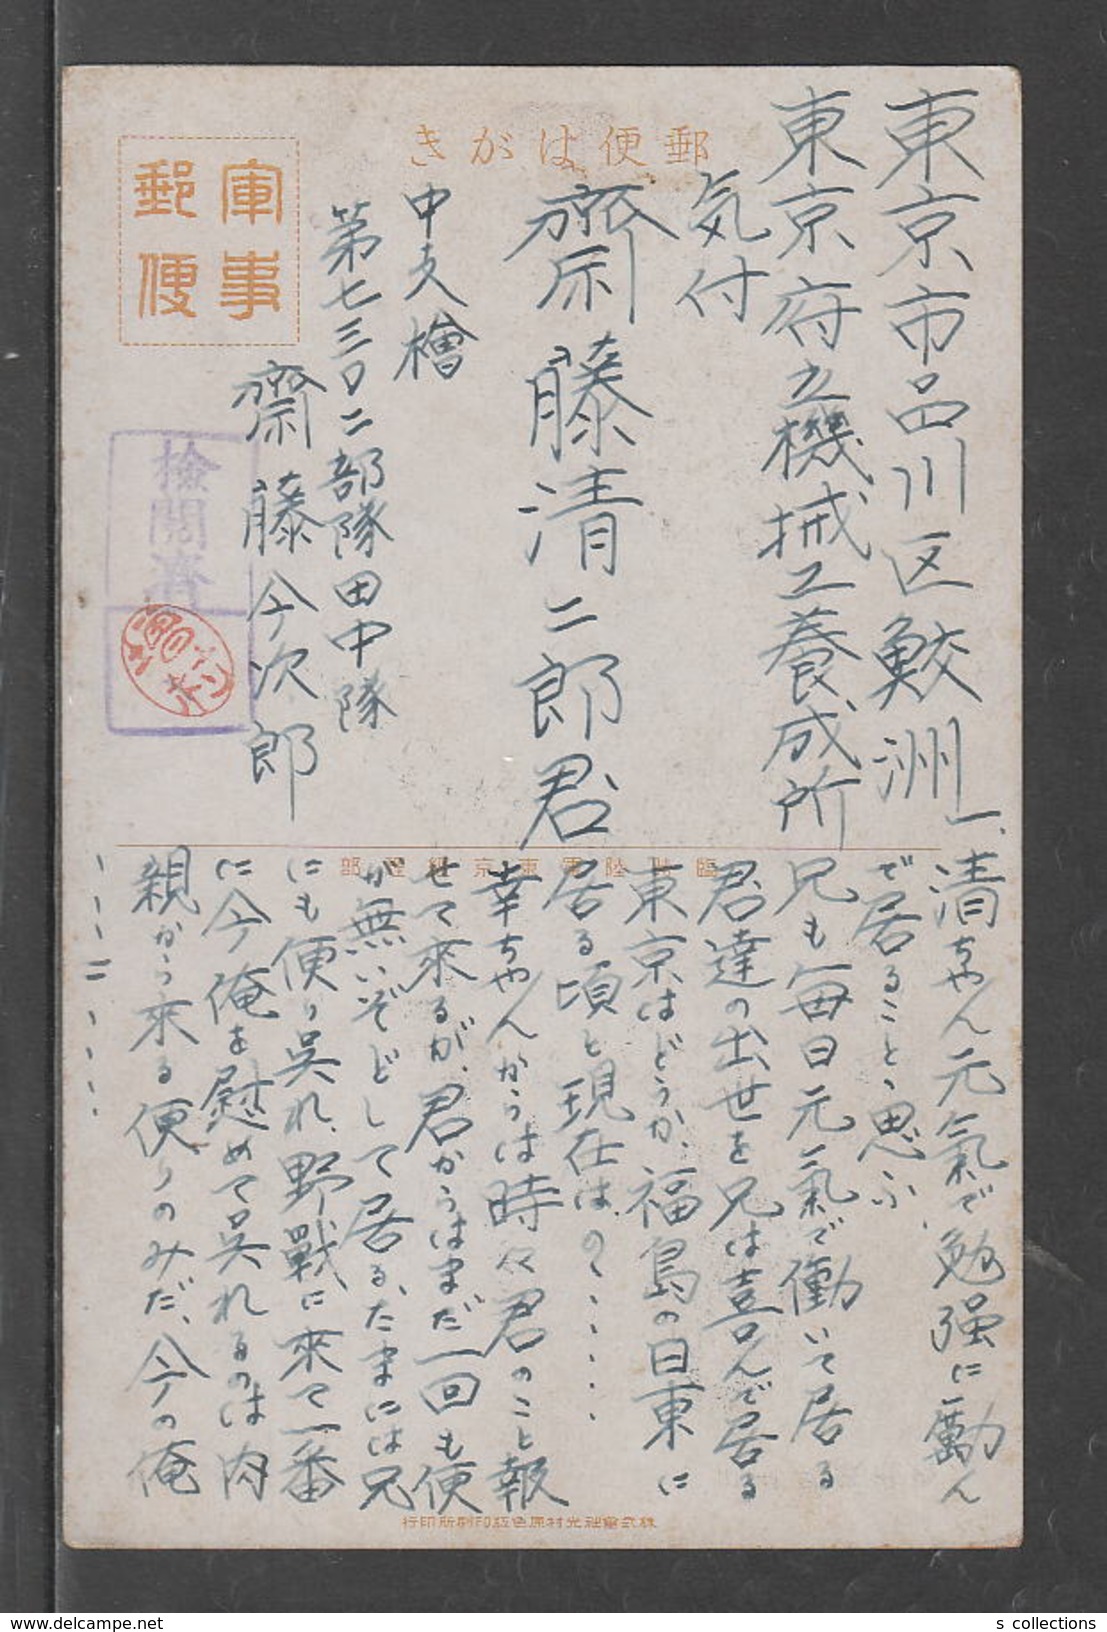 郵便はがき
軍事郵便
東京市品川区鮫洲一、
東京府立機械工養成所
気付
齋藤清二郎君
中支檜
第七三〇二部隊田中隊
齋藤今次郎
検閲済
臨時陸軍東京経理部
清ちゃん元氣で勉强に勵ん
で居ることゝ思ふ、
兄も毎日元氣で働いて居る
君達の出世を兄は喜んで居る
東京はどうか、福島の日東に
居る頃と現在は、の、、、、、
幸ちやんからは時々君のこと報
せて來るが、君からはまだ一回も便
が無いぞどして居る、たまには兄
にも便り呉れ、野戰に來て一番
に今俺を慰めて呉れるのは肉
親から來る便りのみだ、今の俺
株式會社光村原色版印刷所印行
s collections